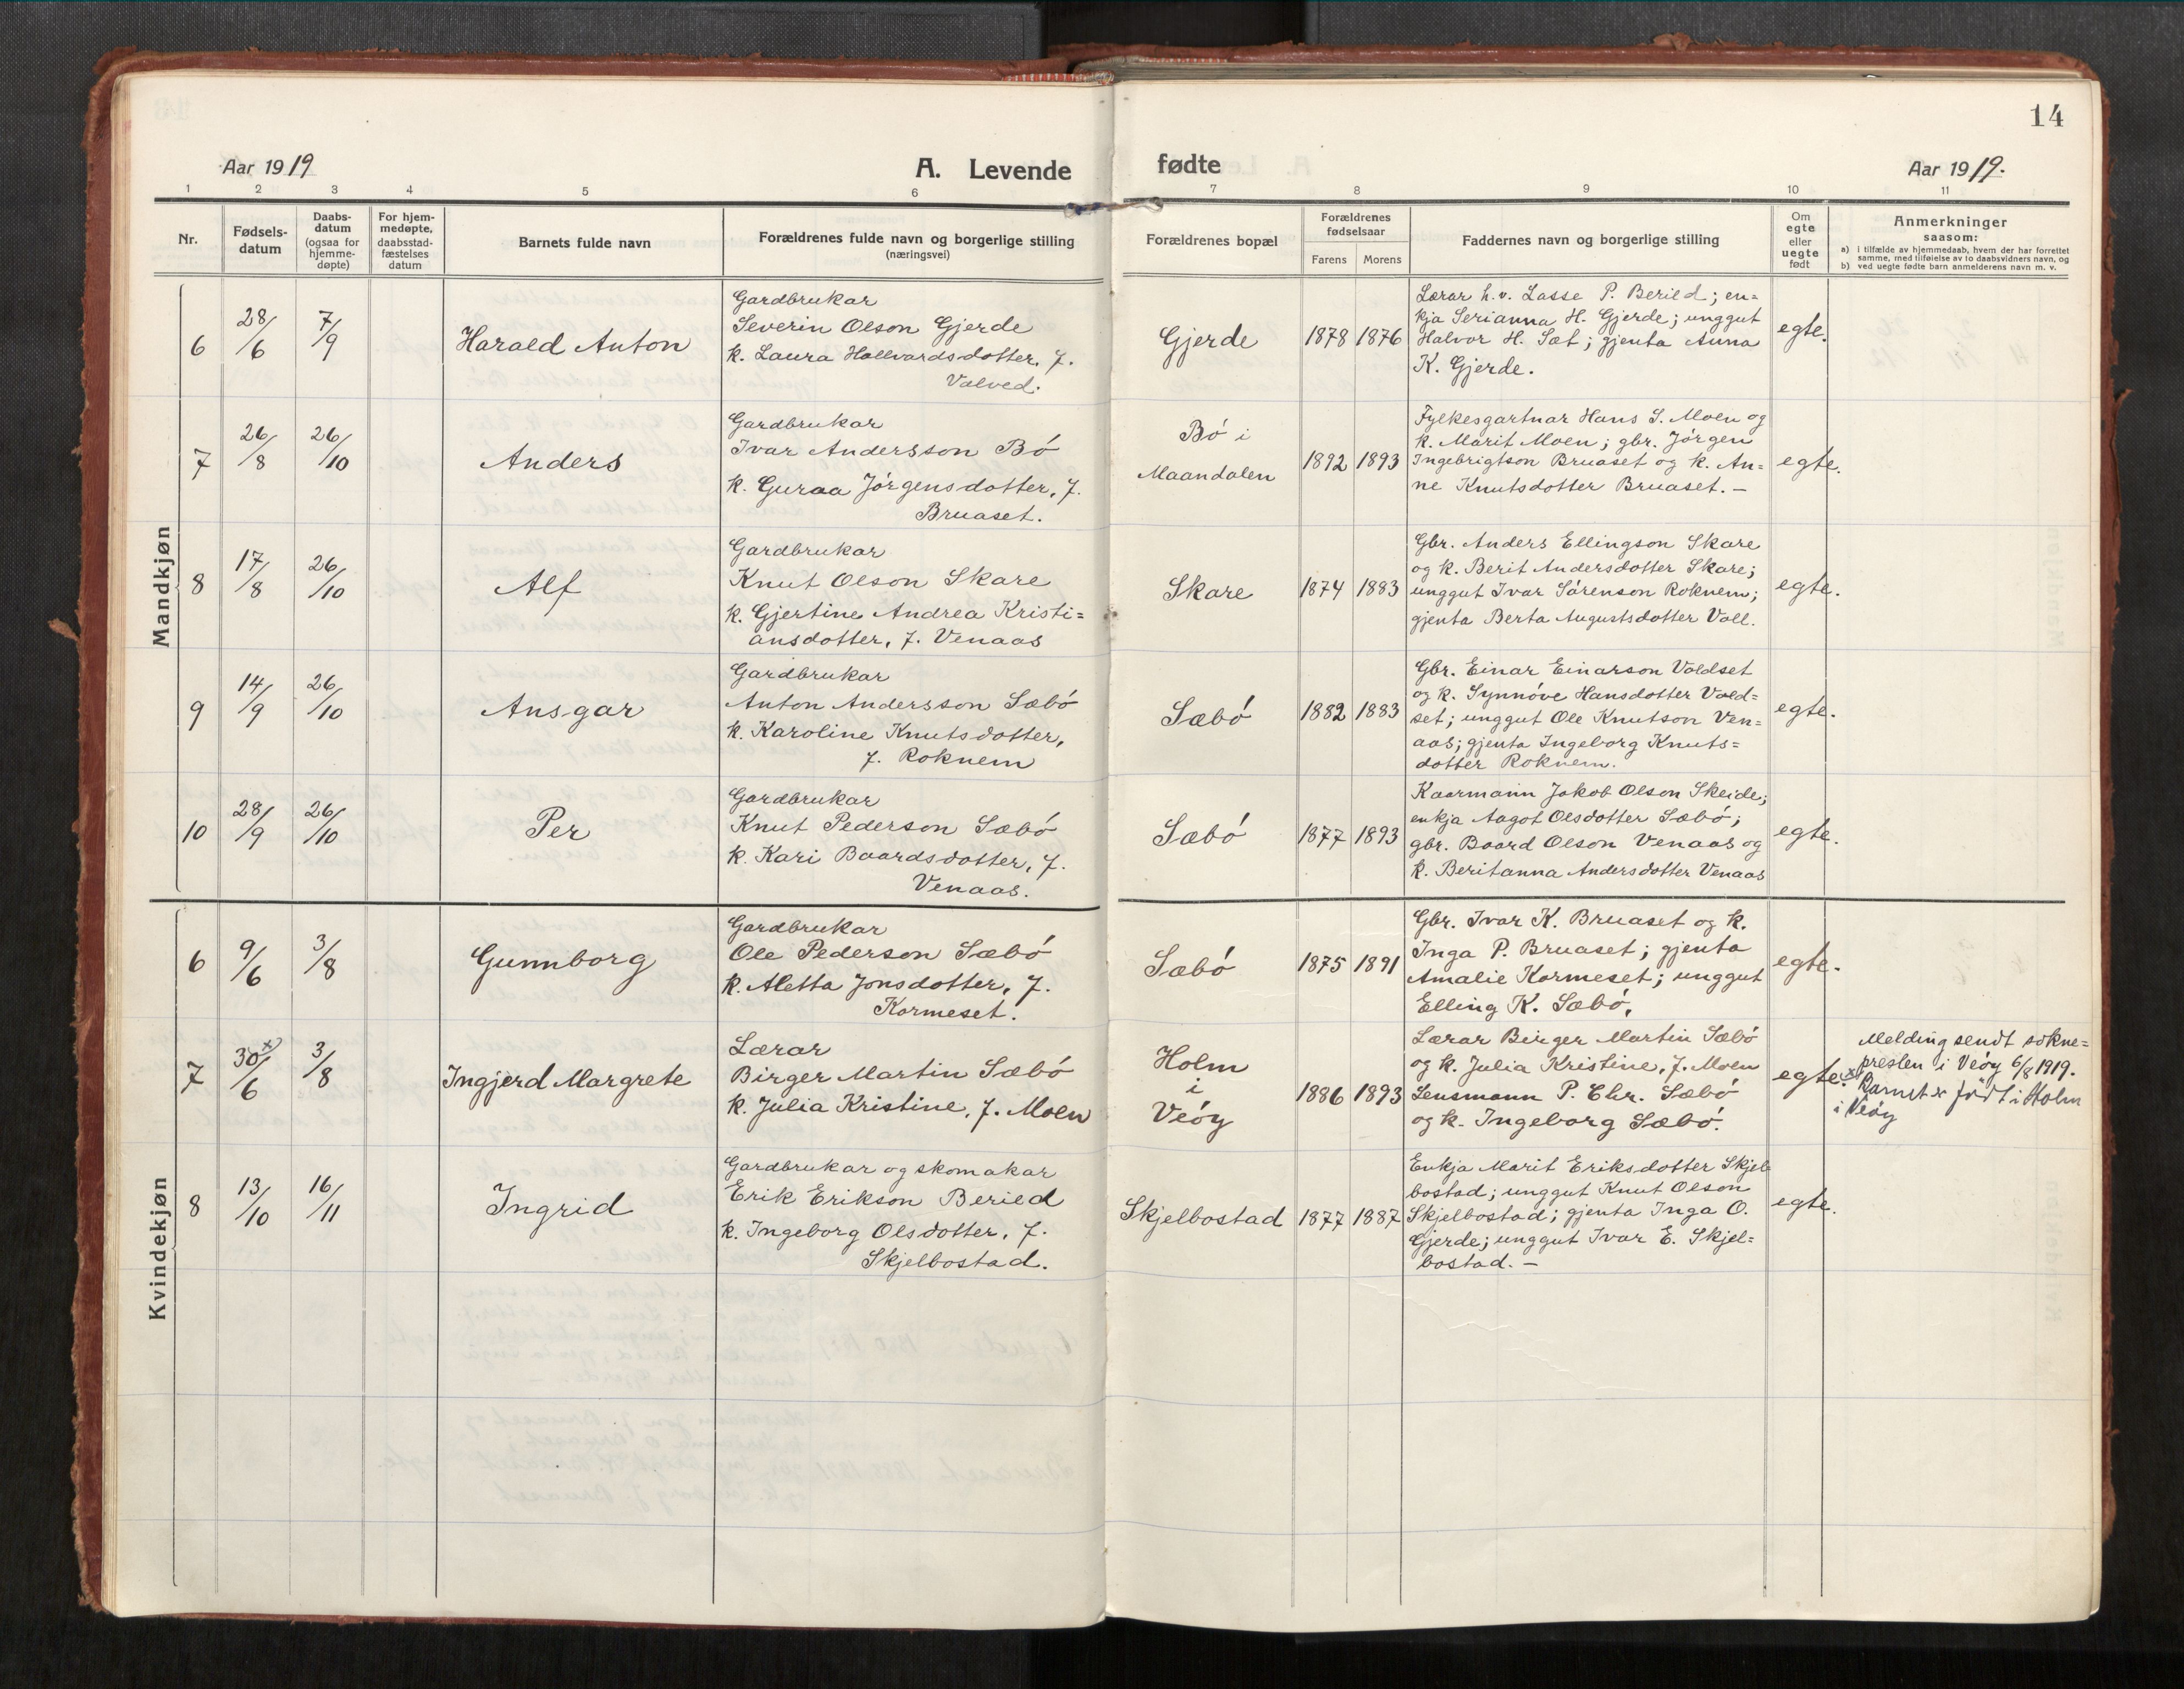 14
Aar 1919
A. Levende fødte
Aar 1919.
1 2 3 4 5 6 7 8 9 10 11
Nr.
Fødsels-
datum
Daabs-
datum
(ogsaa for
hjemme-
døpte)
For hjem-
medøpte,
daabsstad-
fæstelses
datum
Barnets fulde navn
Forældrenes fulde navn og borgerlige stilling
(næringsvei)
Forældrenes bopæl
Forældrenes
fødselsaar
Farens Morens
Faddernes navn og borgerlige stilling
Om
egte
eller
uegte
født
Anmerkninger
saasom:
a) i tilfælde av hjemmedaab, hvem der har forrettet
samme, med tilføielse av to daabsvidners navn, og
b) ved uegte fødte barn anmelderens navn m. v.
Mandkjøn
6
28/6
7/9
Harald Anton
Gardbrukar
Severin Olson Gjerde
k. Laura Hallvardsdotter, f.
Valved.
Gjerde
1878 1876
Lærar h.v. Lasse P. Berild; en=
kja Serianna H. Gjerde; unggut
Halvor H. Sæt; gjenta Anna
K. Gjerde.
egte.
7
26/8
26/10
Anders
Gardbrukar
Ivar Andersson Bó
k. Guraa Jórgensdotter, f.
Bruaset.
Bó i
Maandalen
1892 1893
Fylkesgartnar Hans S. Moen og
k. Marit Moen; gbr. Jórgen
Ingebrigtson Bruaset og k. An=
ne Knutsdotter Bruaset. —
egte.
8
17/8
26/10
Alf
Gardbrukar
Knut Olson Skare
k. Gjertine Andrea Kristi=
ansdotter, f. Venaas
Skare
1874 1883
Gbr. Anders Ellingson Skare
og k. Berit Andersdotter Skare;
unggut Ivar Sórenson Roknem;
gjenta Berta Augustsdotter Voll.
egte.
9
14/9
26/10
Ansgar
Gardbrukar
Anton Andersson Sæbó
k. Karoline Knutsdotter,
f. Roknem
Sæbó
1882 1883
Gbr. Einar Einarson Voldset
og k. Synnóve Hansdotter Vold=
set; unggut Ole Knutson Ven=
aas; gjenta Ingeborg Knuts=
dotter Roknem.
egte.
10
28/9
26/10
Per
Gardbrukar
Knut Pederson Sæbó
k. Kari Baardsdotter, f.
Venaas.
Sæbó
1877 1893
Kaarmann Jakob Olson Skeide;
enkja Aagot Olsdotter Sæbó;
gbr. Baard Olson Venaas og
k. Beritanna Andersdotter Venaas
egte.
Kvindekjøn
6
9/6
3/8
Gunnborg
Gardbrukar
Ole Pederson Sæbó
k. Aletta Jonsdotter, f.
Kormeset.
Sæbó
1875 1891
Gbr. Ivar K. Bruaset og k.
Inga P. Bruaset; gjenta
Amalie Kormeset; unggut
Elling K. Sæbó.
egte.
7
30/6 x)
3/8
Ingjerd Margrete
Lærar
Birger Martin Sæbó
k. Julia Kristine, f. Moen
Holm
i
Veóy
1886 1893
Lærar Birger Martin Sæbó
og k. Julia Kristine, f. Moen
Lensmann P. Chr. Sæbó
og k. Ingeborg Sæbó.
egte.
Melding sendt sokne=
presten i Veóy 6/8 1919.
x) Barnet er fódt i Holm
i Veóy
8
13/10
16/11
Ingrid
Gardbrukar og skomakar
Erik Erikson Berild
k. Ingeborg Olsdotter, f.
Skjelbostad.
Skjelbostad
1877 1887
Enkja Marit Eriksdotter Skjel
bostad; unggut Knut Olson
Skjelbostad; gjenta Inga O.
Gjerde; unggut Ivar E. Skjel=
bostad. —
egte.